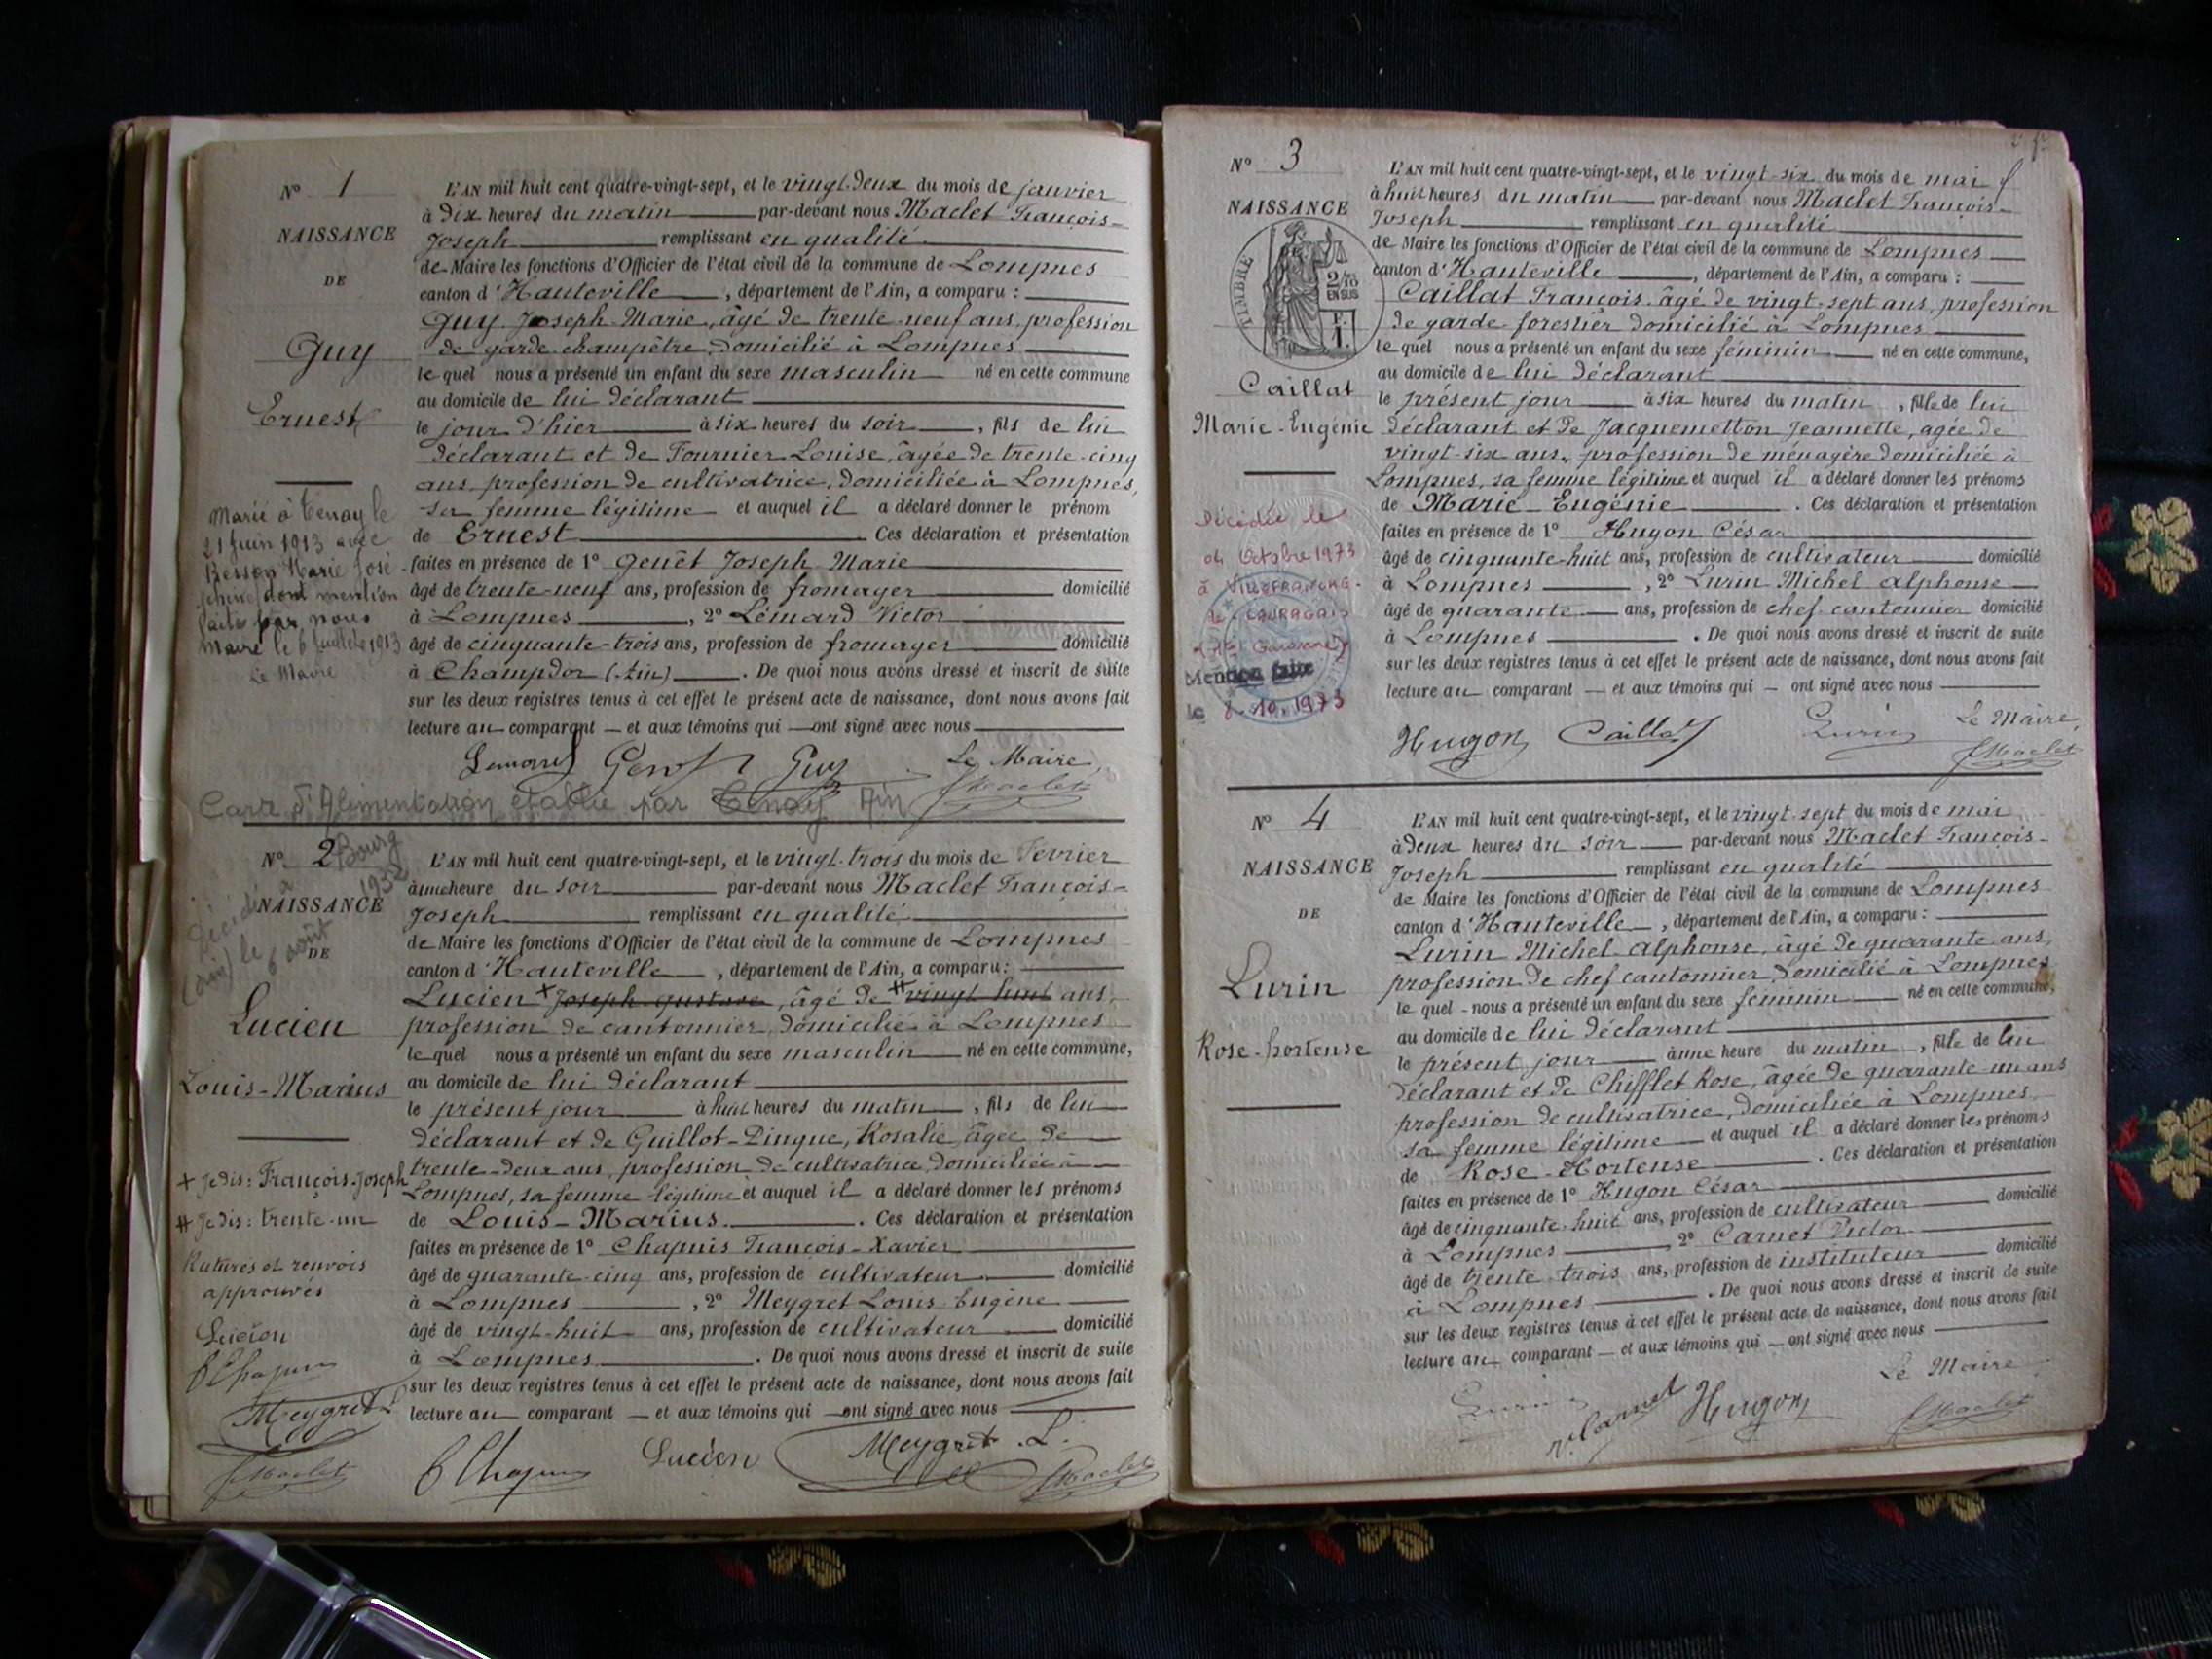 N° 1
NAISSANCE
DE
Guy
Ernest
Marié à Tenay le
21 Juin 1913 avec
Besson Marie José-
phine dont mention
faite par nous
Maire le 6 Juillet 1913
Le Maire
L'AN mil huit cent quatre-vingt-sept, et le vingt-deux du mois de janvier
à dix heures du matin par-devant nous Maclet François-
Joseph remplissant en qualité
de Maire les fonctions d'Officier de l'état civil de la commune de Lompnes
canton d'Hauteville, département de l'Ain, a comparu :
Guy Joseph-Marie, âgé de trente-neuf ans, profession
de garde-champêtre, domicilié à Lompnes
le quel nous a présenté un enfant du sexe masculin né en cette commune
au domicile de lui déclarant
le jour d'hier à six heures du soir, fils de lui
déclarant et de Fournier Louise, âgée de trente-cinq
ans, profession de cultivatrice, domiciliée à Lompnes,
sa femme légitime et auquel il a déclaré donner le prénom
de Ernest Ces déclaration et présentation
faites en présence de 1° Genêt Joseph Marie
âgé de trente-neuf ans, profession de fromager domicilié
à Lompnes, 2° Lémard Victor
âgé de cinquante-trois ans, profession de fromager domicilié
à Champdor (Ain). De quoi nous avons dressé et inscrit de suite
sur les deux registres tenus à cet effet le présent acte de naissance, dont nous avons fait
lecture au comparant — et aux témoins qui — ont signé avec nous
Guy Le Maire,
Maclet
Carte d'Alimentation établie par Tenay Ain
N° 2
NAISSANCE
DE
Décédé à Bourg
(Ain) le 6 août 1932
Lucien
Louis-Marius
+ Je dis : François-Joseph
# Je dis : trente-un
Ratures et renvois
approuvés
Lucien
Chapuis
Meygret L
Maclet
L'AN mil huit cent quatre-vingt-sept, et le vingt-trois du mois de Février
à une heure du soir par-devant nous Maclet François-
Joseph remplissant en qualité
de Maire les fonctions d'Officier de l'état civil de la commune de Lompnes
canton d'Hauteville, département de l'Ain, a comparu :
Lucien + Joseph Gustave, âgé de # vingt huit ans,
profession de cantonnier, domicilié à Lompnes
le quel nous a présenté un enfant du sexe masculin né en cette commune,
au domicile de lui déclarant
le présent jour à huit heures du matin, fils de lui
déclarant et de Guillot-Pingue, Rosalie, âgée de
trente-deux ans, profession de cultivatrice, domiciliée à
Lompnes, sa femme légitime et auquel il a déclaré donner les prénoms
de Louis-Marius. Ces déclaration et présentation
faites en présence de 1° Chapuis François-Xavier
âgé de quarante-cinq ans, profession de cultivateur domicilié
à Lompnes, 2° Meygret Louis Eugène
âgé de vingt-huit ans, profession de cultivateur domicilié
à Lompnes. De quoi nous avons dressé et inscrit de suite
sur les deux registres tenus à cet effet le présent acte de naissance, dont nous avons fait
lecture au comparant — et aux témoins qui — ont signé avec nous
Chapuis Lucien Meygret L. Maclet
N° 3
NAISSANCE
TIMBRE
2/10
EN SUS
Caillat
Marie-Eugénie
Décédée le
04 Octobre 1973
à VILLEFRANCHE-
de LAURAGAIS
(Hte Garonne)
Mention faite
le 8.10.1973
L'AN mil huit cent quatre-vingt-sept, et le vingt-six du mois de mai
à huit heures du matin par-devant nous Maclet François-
Joseph remplissant en qualité
de Maire les fonctions d'Officier de l'état civil de la commune de Lompnes
canton d'Hauteville, département de l'Ain, a comparu :
Caillat François, âgé de vingt-sept ans, profession
de garde-forestier domicilié à Lompnes
le quel nous a présenté un enfant du sexe féminin né en cette commune,
au domicile de lui déclarant
le présent jour à six heures du matin, fille de lui
déclarant et de Jacquemetton Jeannette, agée de
vingt-six ans, profession de ménagère domiciliée à
Lompnes, sa femme légitime et auquel il a déclaré donner les prénoms
de Marie-Eugénie. Ces déclaration et présentation
faites en présence de 1° Hugon César
âgé de cinquante-huit ans, profession de cultivateur domicilié
à Lompnes, 2° Lurin Michel Alphonse
âgé de quarante ans, profession de chef-cantonnier domicilié
à Lompnes. De quoi nous avons dressé et inscrit de suite
sur les deux registres tenus à cet effet le présent acte de naissance, dont nous avons fait
lecture au comparant — et aux témoins qui — ont signé avec nous
Hugon Caillat Lurin Le Maire,
Maclet
N° 4
NAISSANCE
DE
Lurin
Rose-hortense
L'AN mil huit cent quatre-vingt-sept, et le vingt-sept du mois de mai
à deux heures du soir par-devant nous Maclet François-
Joseph remplissant en qualité
de Maire les fonctions d'Officier de l'état civil de la commune de Lompnes
canton d'Hauteville, département de l'Ain, a comparu :
Lurin Michel-Alphonse, âgé de quarante ans,
profession de chef cantonnier, domicilié à Lompnes
le quel nous a présenté un enfant du sexe féminin né en cette commune,
au domicile de lui déclarant
le présent jour à une heure du matin, fille de lui
déclarant et de Chifflet Rose, âgée de quarante-un ans
profession de cultivatrice, domiciliée à Lompnes,
sa femme légitime et auquel il a déclaré donner les prénoms
de Rose-Hortense. Ces déclaration et présentation
faites en présence de 1° Hugon César
âgé de cinquante-huit ans, profession de cultivateur domicilié
à Lompnes, 2° Carnet Victor
âgé de trente-trois ans, profession de instituteur domicilié
à Lompnes. De quoi nous avons dressé et inscrit de suite
sur les deux registres tenus à cet effet le présent acte de naissance, dont nous avons fait
lecture au comparant — et aux témoins qui — ont signé avec nous
Le Maire
Lurin V. Carnet Hugon Maclet